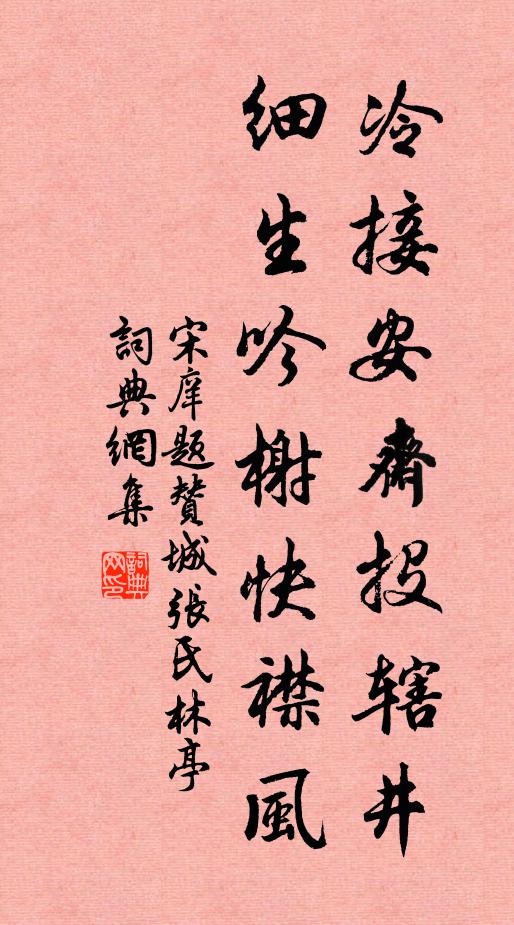 冷接安齋投辖井
細生吟榭快襟風
宋庠題賛城張氏林亭
詞典網集
詞典网印